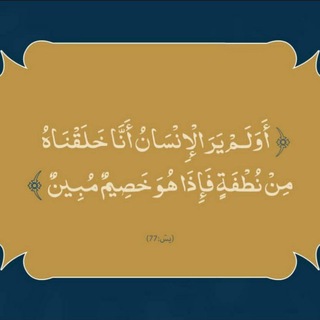 ﴿ أَوَلَمْ يَرَ الْإِنْسَانُ أَنَّا خَلَقْنَاهُ
مِنْ نُطْفَةٍ فَإِذَا هُوَ خَصِيمٌ مُبِينٌ ﴾
(يس:77)